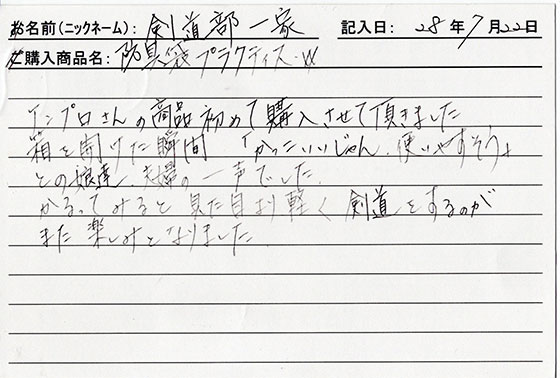 お名前(ニックネーム): 剣道部一家 記入日: 28年7月22日
ご購入商品名: 防具袋プラクティス・W
インプロさんの商品初めて購入させて頂きました
箱を開けた瞬間「かっこいいじゃん、使いやすそう」
との娘達、第一声でした。
かるってみると見た目より軽く剣道をするのが
また楽しみとなりました